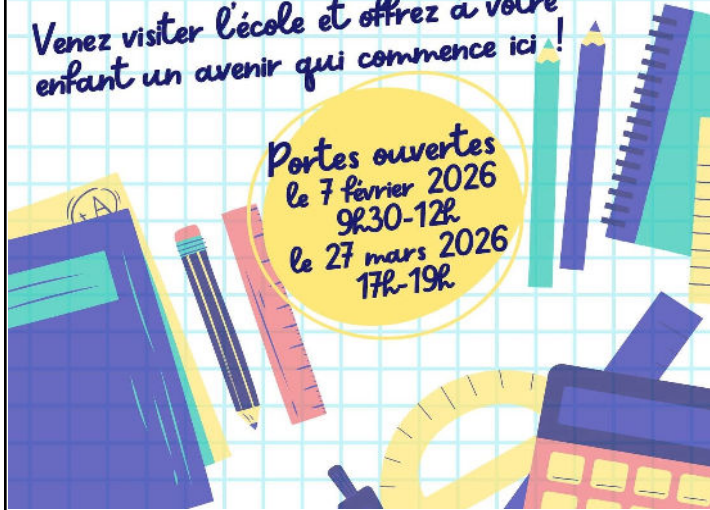 Venez visiter l'école et offrez à votre
enfant un avenir qui commence ici !
Portes ouvertes
le 7 février 2026
9h30-12h
le 27 mars 2026
17h-19h
A+